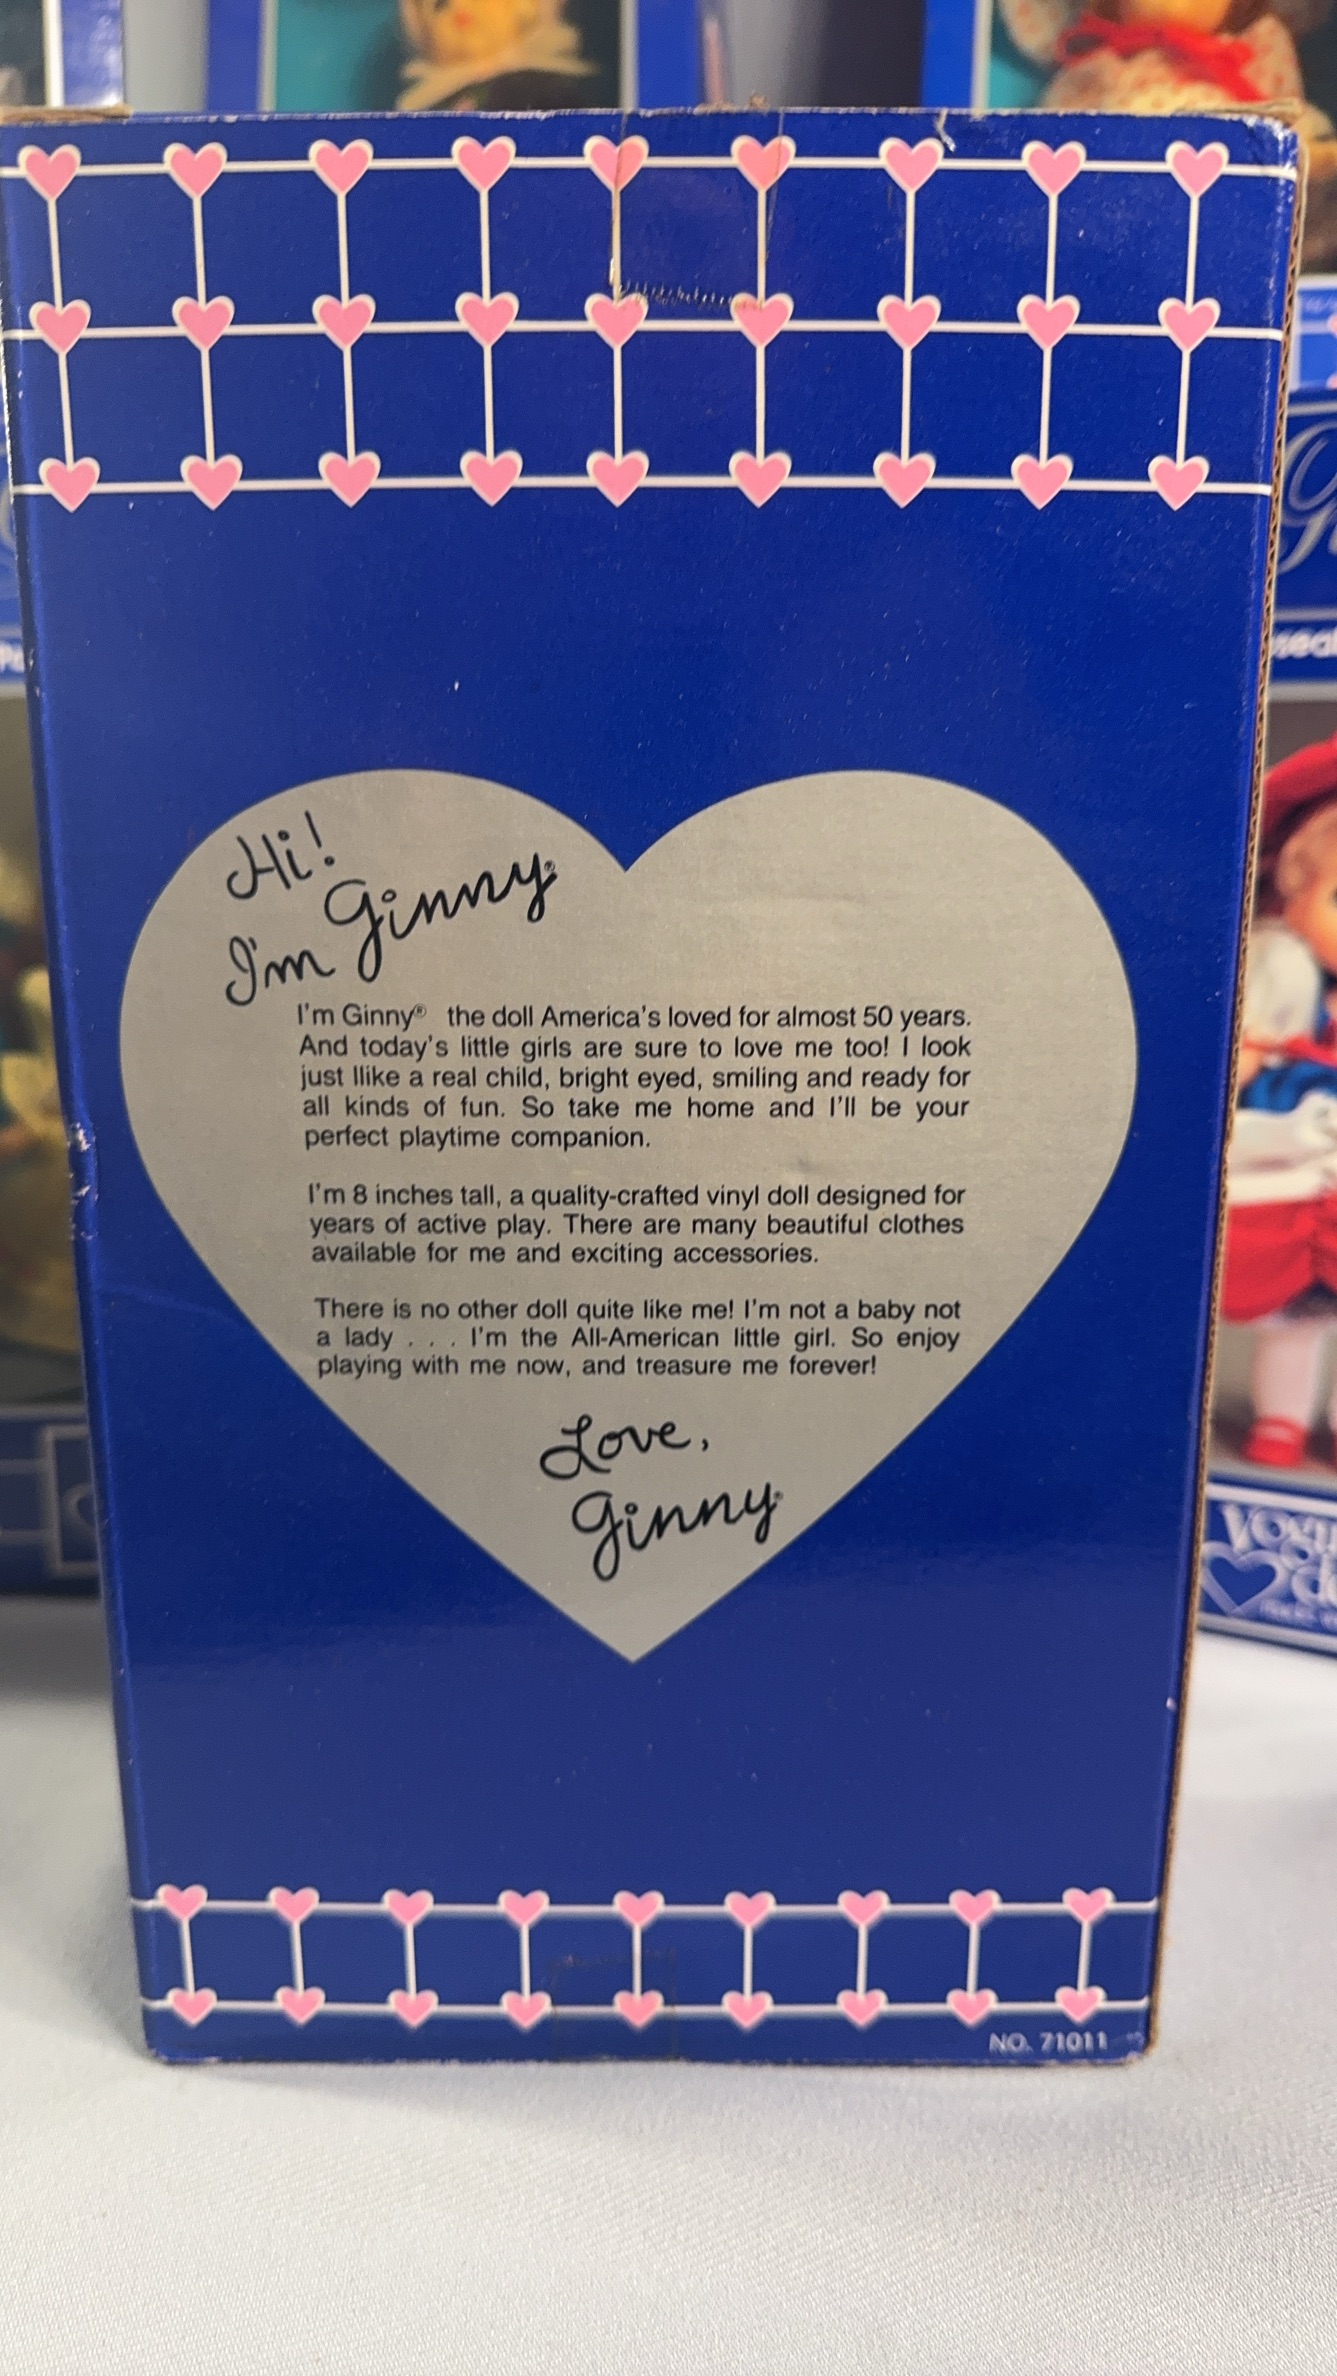 Hi!
I'm Ginny®
I'm Ginny® the doll America's loved for almost 50 years.
And today's little girls are sure to love me too! I look
just llike a real child, bright eyed, smiling and ready for
all kinds of fun. So take me home and I'll be your
perfect playtime companion.
I'm 8 inches tall, a quality-crafted vinyl doll designed for
years of active play. There are many beautiful clothes
available for me and exciting accessories.
There is no other doll quite like me! I'm not a baby not
a lady . . . I'm the All-American little girl. So enjoy
playing with me now, and treasure me forever!
Love,
Ginny®
NO. 71011